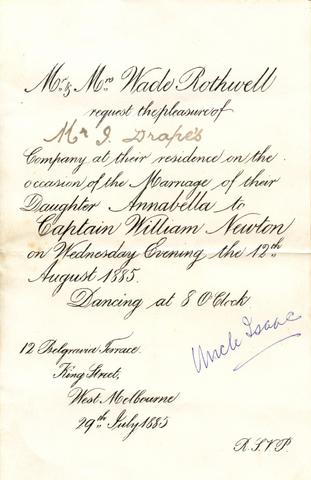 Mr & Mrs Wade Rothwell
request the pleasure of
Mr I. Drapes
Company at their residence on the
occasion of the Marriage of their
Daughter Annabella to
Captain William Newton
on Wednesday Evening the 12th
August 1885.
Dancing at 8 O'Clock
Uncle Isaac
12 Belgravia Terrace.
King Street,
West Melbourne
29th July 1885
R.S.V.P.